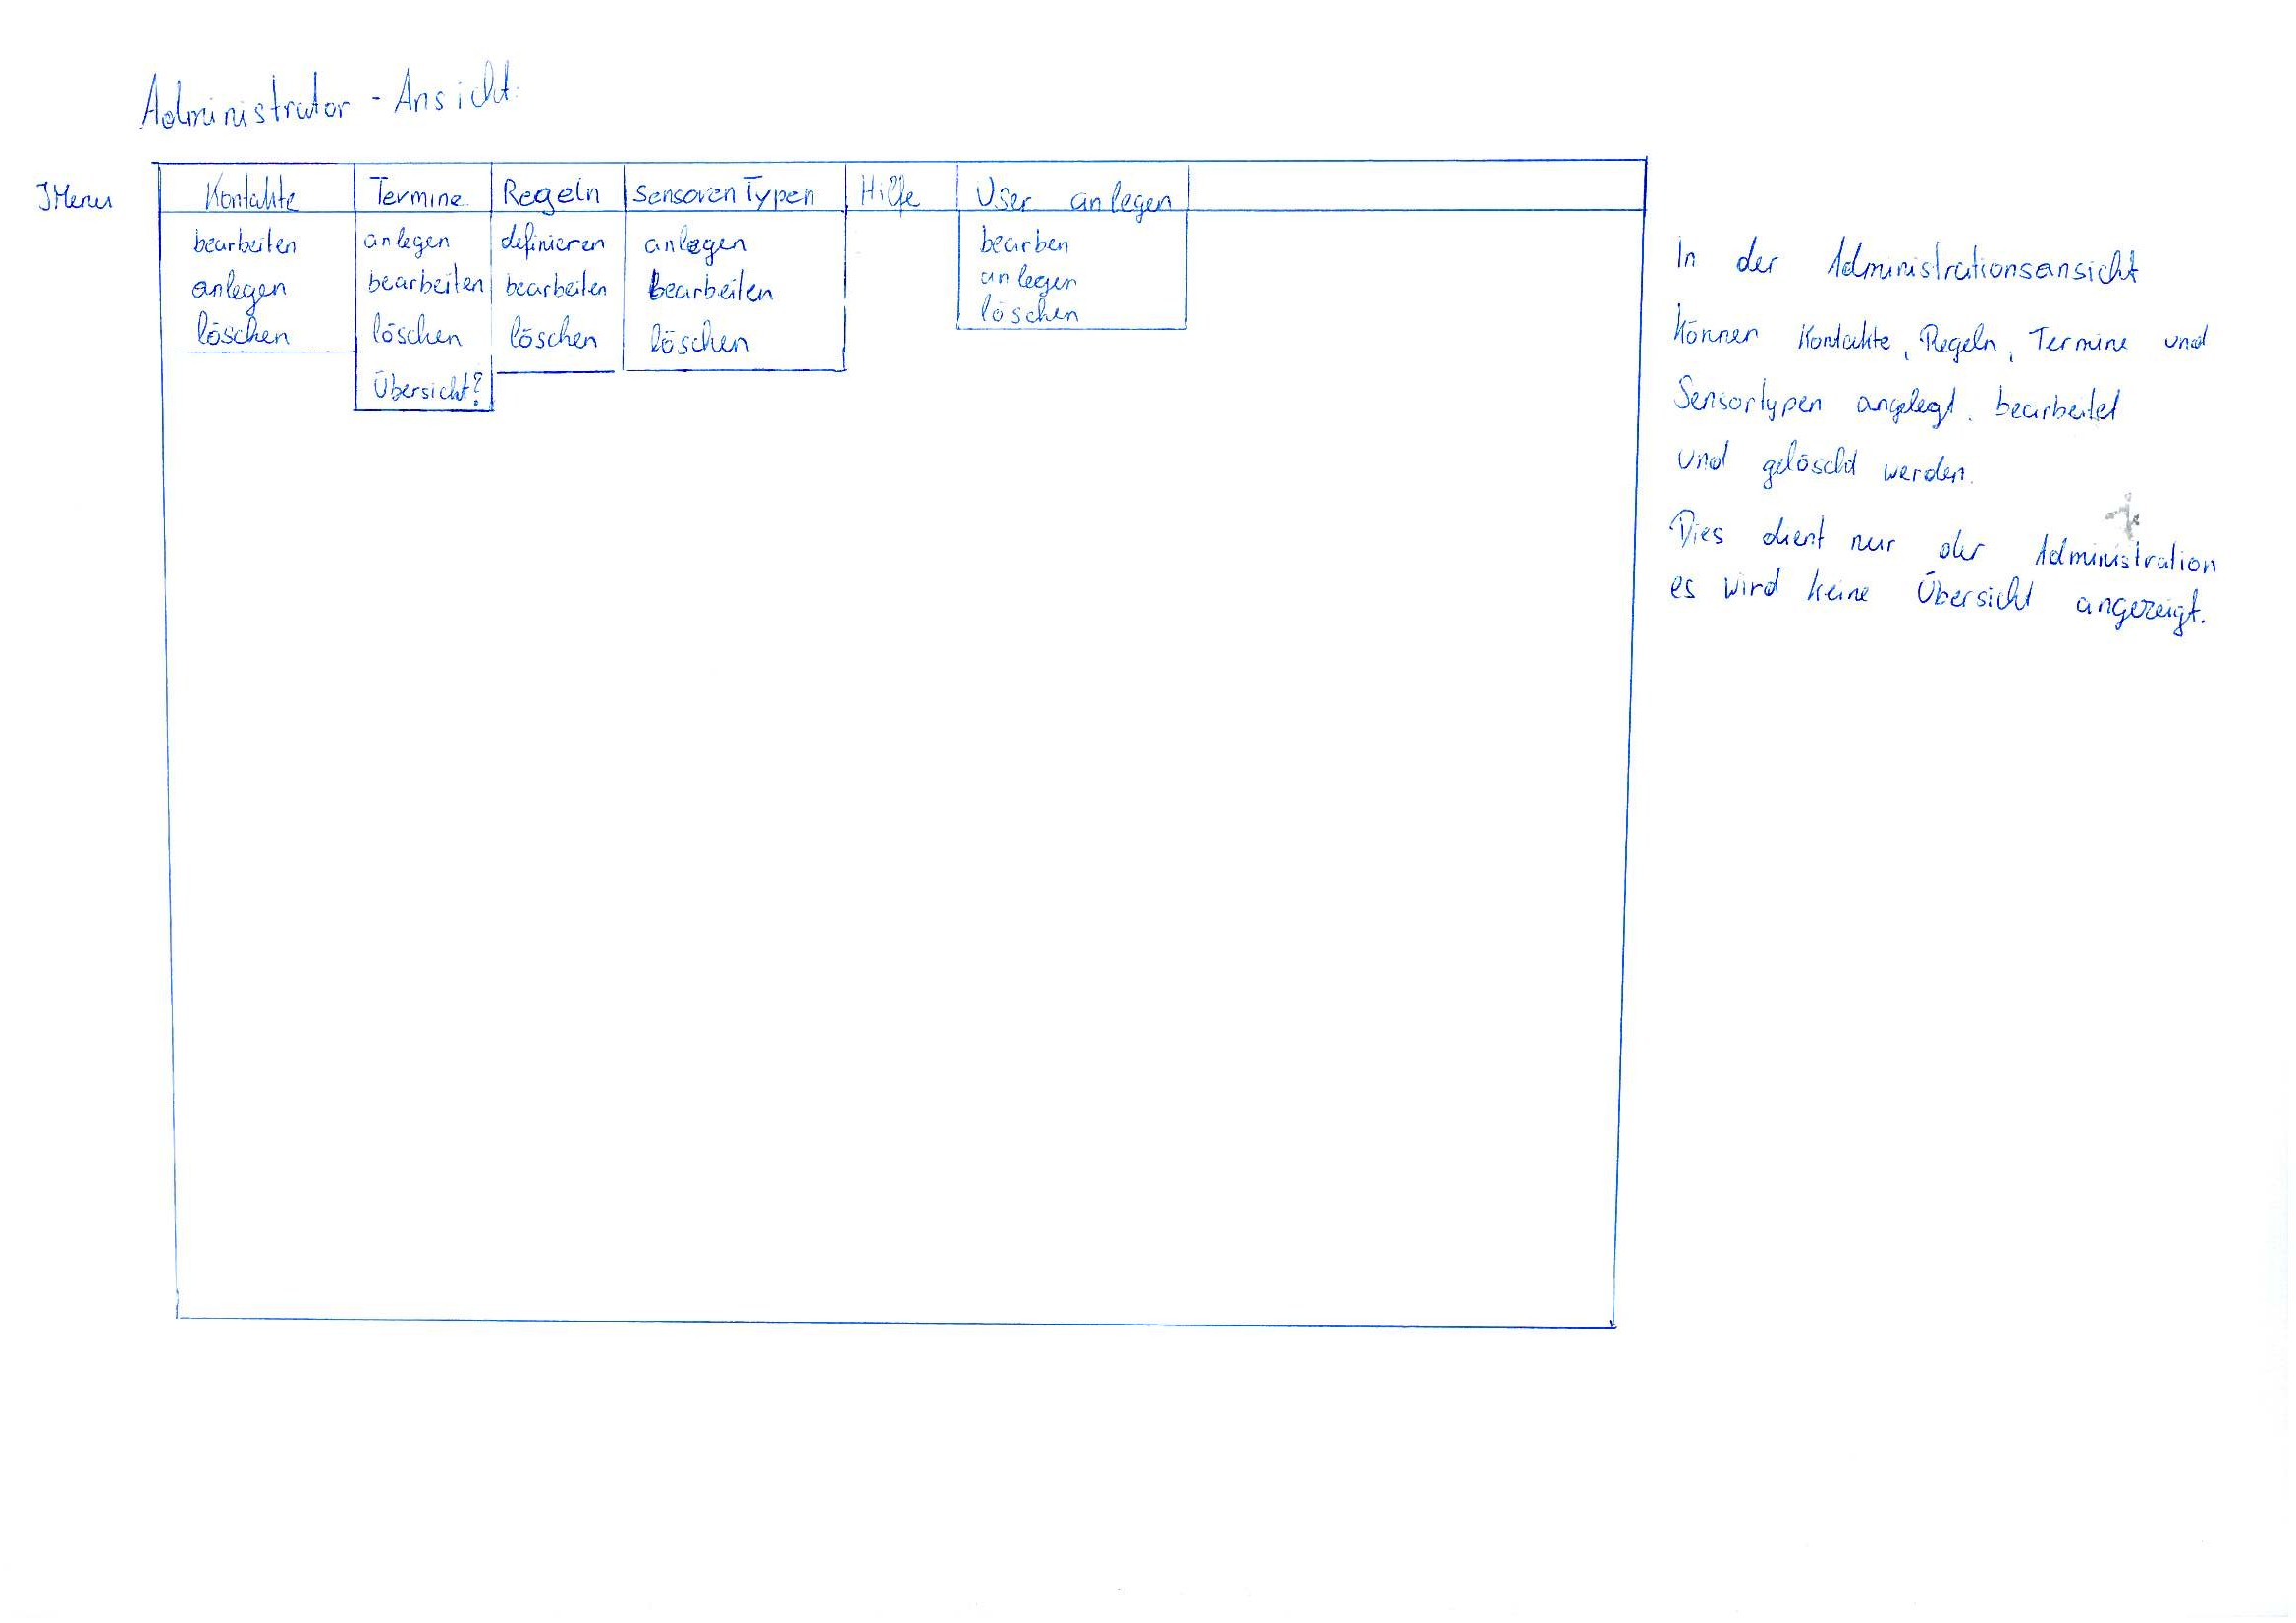 Administrator - Ansicht:
JMenu
Kontakte Termine Regeln Sensoren Typen Hilfe User anlegen
bearbeiten anlegen definieren anlegen bearben
anlegen bearbeiten bearbeiten bearbeiten anlegen
löschen löschen löschen löschen löschen
Übersicht?
In der Administrationsansicht
können Kontakte, Regeln, Termine und
Sensortypen angelegt, bearbeitet
und gelöscht werden.
Dies dient nur der Administration
es wird keine Übersicht angezeigt.